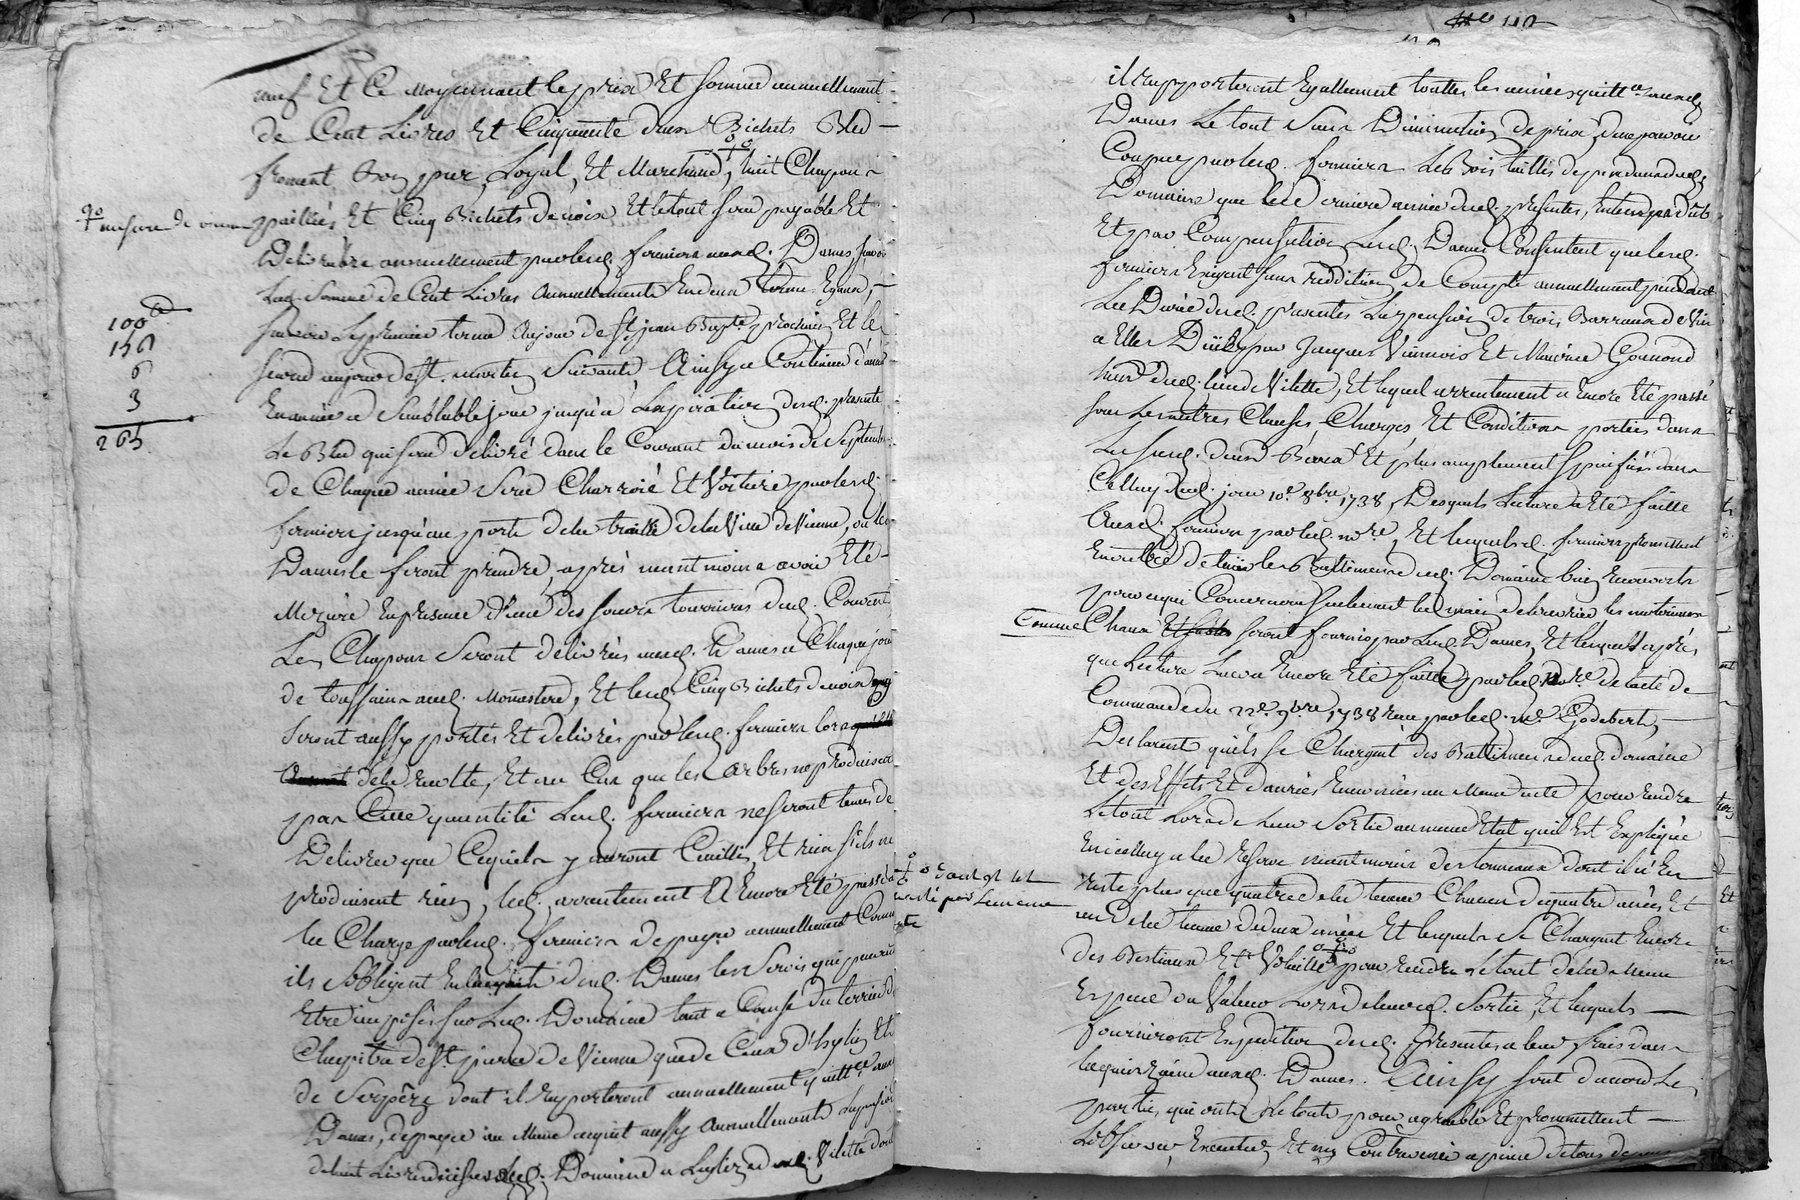 neuf Et Ce Moyennant le prix Et Somme annuellement
de Cent Livres Et Cinquante deux Bichets Bled
froment Bon, pur, Loyal, Et Marchand, huit Chapons
mesure de vienne
paillés Et Cinq Bichets de noix Et le tout sera payable Et
Delivrable annuellement par lesd. fermiers auxd. Dames, sçavoir
Lad. Somme de Cent Livres Annuellement En deux termes Egaux,
sçavoir Le premier terme au jour de St. jean Bapte. prochain, Et le
second au jour de St. martin Suivant Ainsy a Continuer d'année
En année a Semblable jour jusqu'a L'expiration desd. presentes
100
156
6
3
265
Le Bled qui sera delivré dans le Courant du mois de Septembre
de Chaque année Sera Charroié Et Voituré par lesd.
fermiers jusqu'au porte de la traille de la Ville de Vienne, ou les
Dames le feront prendre, après neantmoins avoir Eté
Mezuré En presence d'une des soeurs tourrieres dud. Couvent
Les Chapons Seront delivrés auxd. Dames a Chaque jour
de toussaint aud. Monastere, Et lesd. Cinq Bichets de noix
Seront aussy portés Et delivrés par lesd. fermiers lors
de la recolte, Et au Cas que les arbres ne produisent
pas Cette quantité Lesd. fermiers ne seront tenus de
Delivrer que Ce qu'ils y auront Cueilli, Et rien s'ils ne
produisent rien, led. arrentement a Encore Eté passé a
la Charge par lesd. fermiers de payer annuellement Comme
ils s'obligent En l'acquit desd. Dames les Servis qui peuvent
Etre imposés sur Led. Domaine tant a Cause du terrier du
Chapitre de St. pierre de Vienne que de Ceux d'
de Serpeze dont il raporteront annuellement quittce. aux
Dames, de payer au Meme acquit aussy annuellement La pension
il rapporteront Egallement touttes les années quittce. auxd.
Dames Le tout Sans Diminution de prix, ne pouvoir
Couper par lesd. fermiers Les Bois taillis dependans dud.
Domaine que la derniere année desd. presentes,
Et par Compensation Lesd. Dames Consentent que lesd.
fermiers Exigent sans reddition de Compte annuellement pendant
La Durée desd. presentes La pension de trois Barraux de Vin
a Elles Düe par Jacques Viennois Et Maurice Gonnond
dud. lieu de Vilette, Et lequel arrentement a Encore Eté passé
sous Les autres Clauses Charges Et Conditions portées dans
Celluy dud. jour 10e. 8bre. 1738, Desquels Lecture a Eté faitte
auxd. fermiers par led. nore., Et lesquels. fermiers promettent
Entretenir les Battiments dud. Domaine bien Encouverts
pour ce qui Concernera seulement la main de l'ouvrier les materiaux
Comme
Chaux seront fournis par Lesd. Dames, Et lesquels après
que Lecture Leur a Encore Eté faitte par led. Nore. de l'acte de
Commande du 22e. 9bre. 1738 reçu par led. me. Godebert,
Declarent qu'ils se Chargent des Battiments dud. domaine
Et des Effets Et danrées Enoncées au Meme acte pour rendre
Le tout Lors de Leur Sortie au meme Etat qu'il Est Expliqué
En icelluy a la reserve neantmoins des tonneaux dont il n'En
reste plus que quatre de la tenue Chacun de quatre anées Et
un de la tenue de deux anées Et lesquels se Chargent Encore
des Bestiaux Et Volaille pour rendre Le tout de la Meme
Espece ou Valeur Lors de leurd. Sortie, Et lesquels
fourniront Expedition desd. presentes a leur frais dans
la quinzaine auxd. Dames. Ainsy sont d'accord Les
parties qui ont Le tout pour agreable Et promettent
L'observer, Executer, Et n'y Contrevenir a peine de tous depens